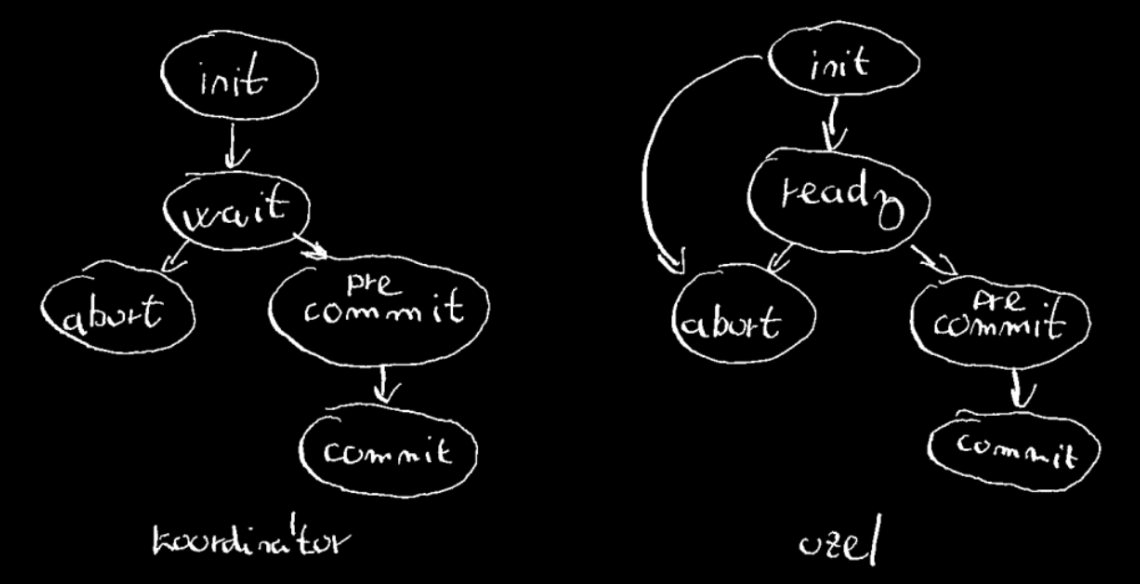 init
wait
abort
pre
commit
commit
koordinátor
init
ready
abort
pre
commit
commit
uzel